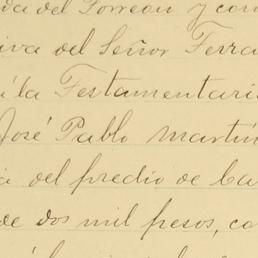 da del Torreon y con
iva del Señor Terra
á la Testamentari
José Pablo Martín
a del predio de ba
de dos mil pesos, co